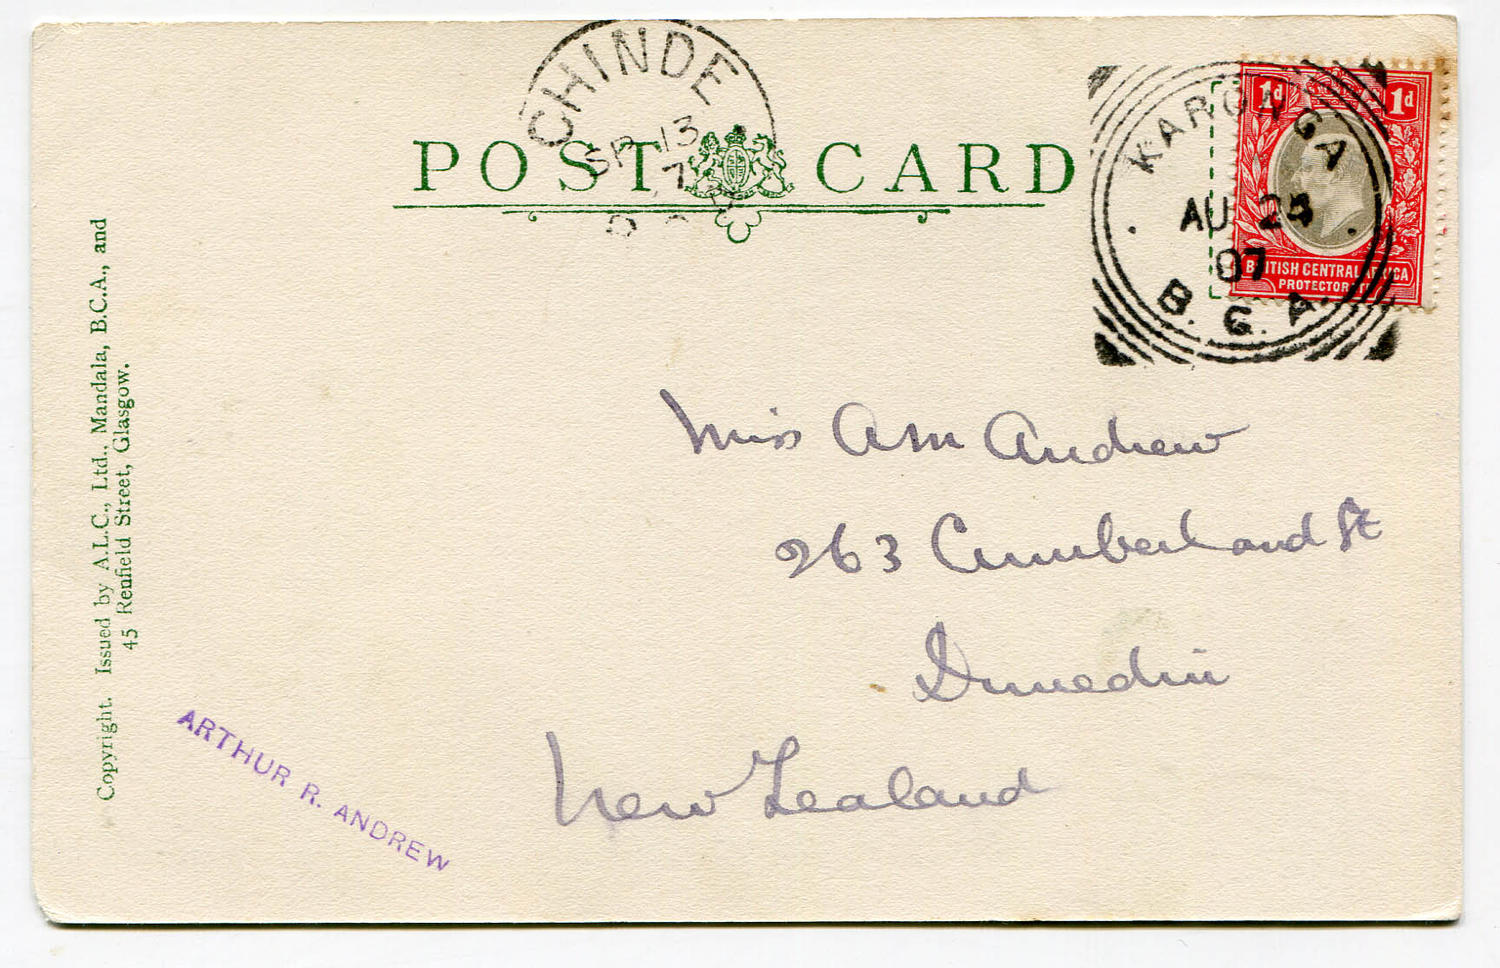 CHINDE
SP 13
7
POST CARD
KARONGA
AU 24
07
B. C. A.
1d 1d
BRITISH CENTRAL AFRICA
PROTECTORATE
Copyright. Issued by A.L.C., Ltd., Mandala, B.C.A., and
45 Renfield Street, Glasgow.
Miss A M Andrew
263 Cumberland St
Dunedin
New Zealand
ARTHUR R. ANDREW